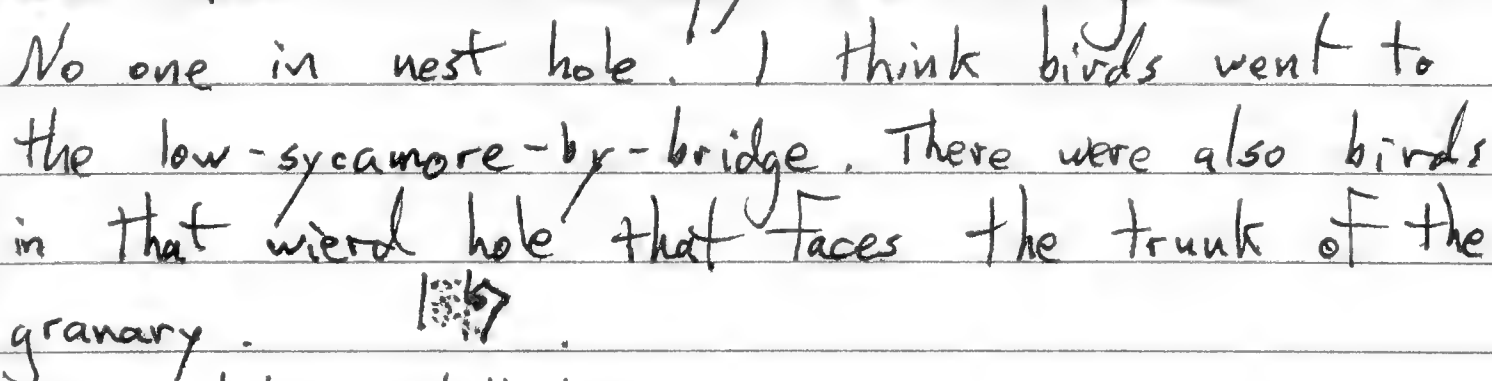 No one in nest hole. I think birds went to
the low-sycamore-by-bridge. There were also birds
in that wierd hole that faces the trunk of the
granary.